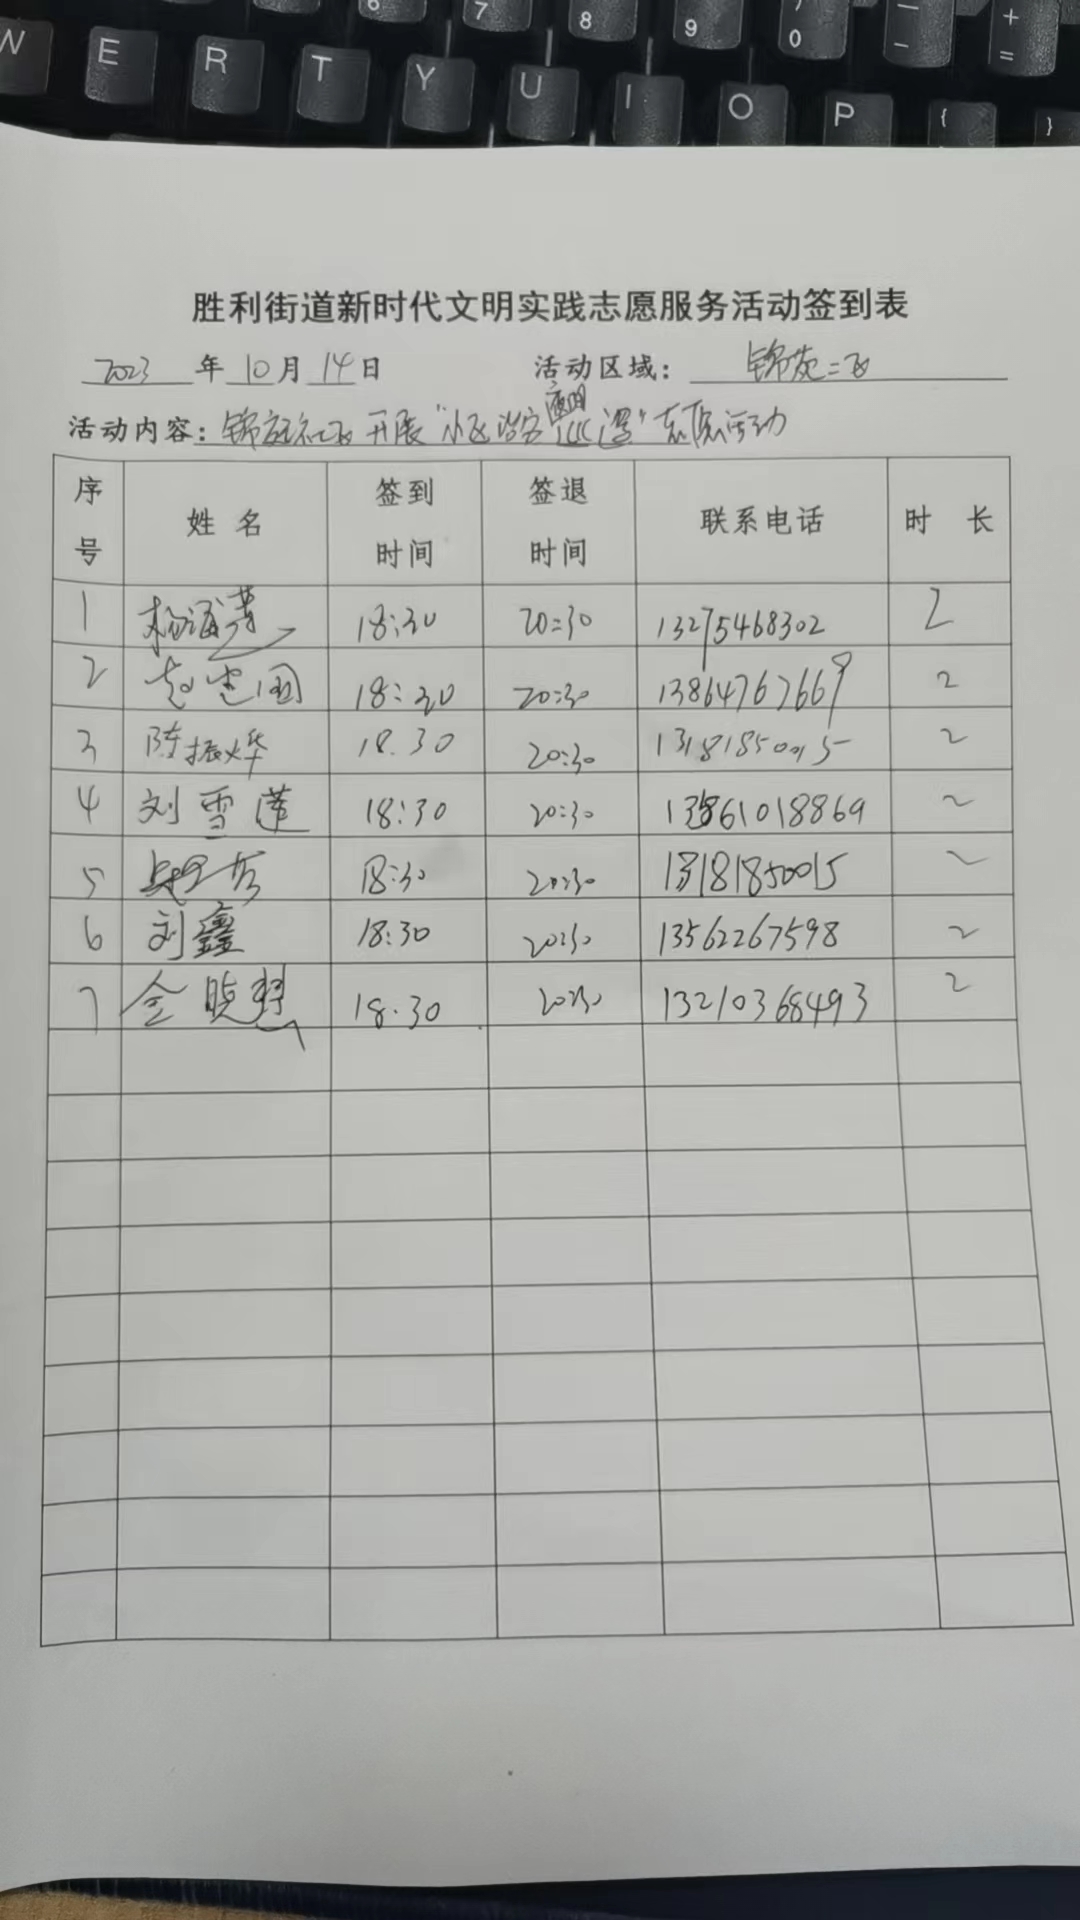 W E R T Y U I O P { }
6 7 8 9 ) 0 — - + =
胜利街道新时代文明实践志愿服务活动签到表
2023 年 10 月 14 日 活动区域: 锦苑二区
活动内容: 锦苑社区开展"小区治安夜间巡逻"志愿活动
序号 姓 名 签到时间 签退时间 联系电话 时 长
1 18:30 20:30 13275468302 2
2 赵建国 18:30 20:30 13864767669 2
3 陈振烨 18.30 20:30 13181850015 2
4 刘雪莲 18:30 20:30 13561018869 2
5 18:30 20:30 13181850015 2
6 刘鑫 18:30 20:30 13562267598 2
7 18.30 20:30 13210368493 2